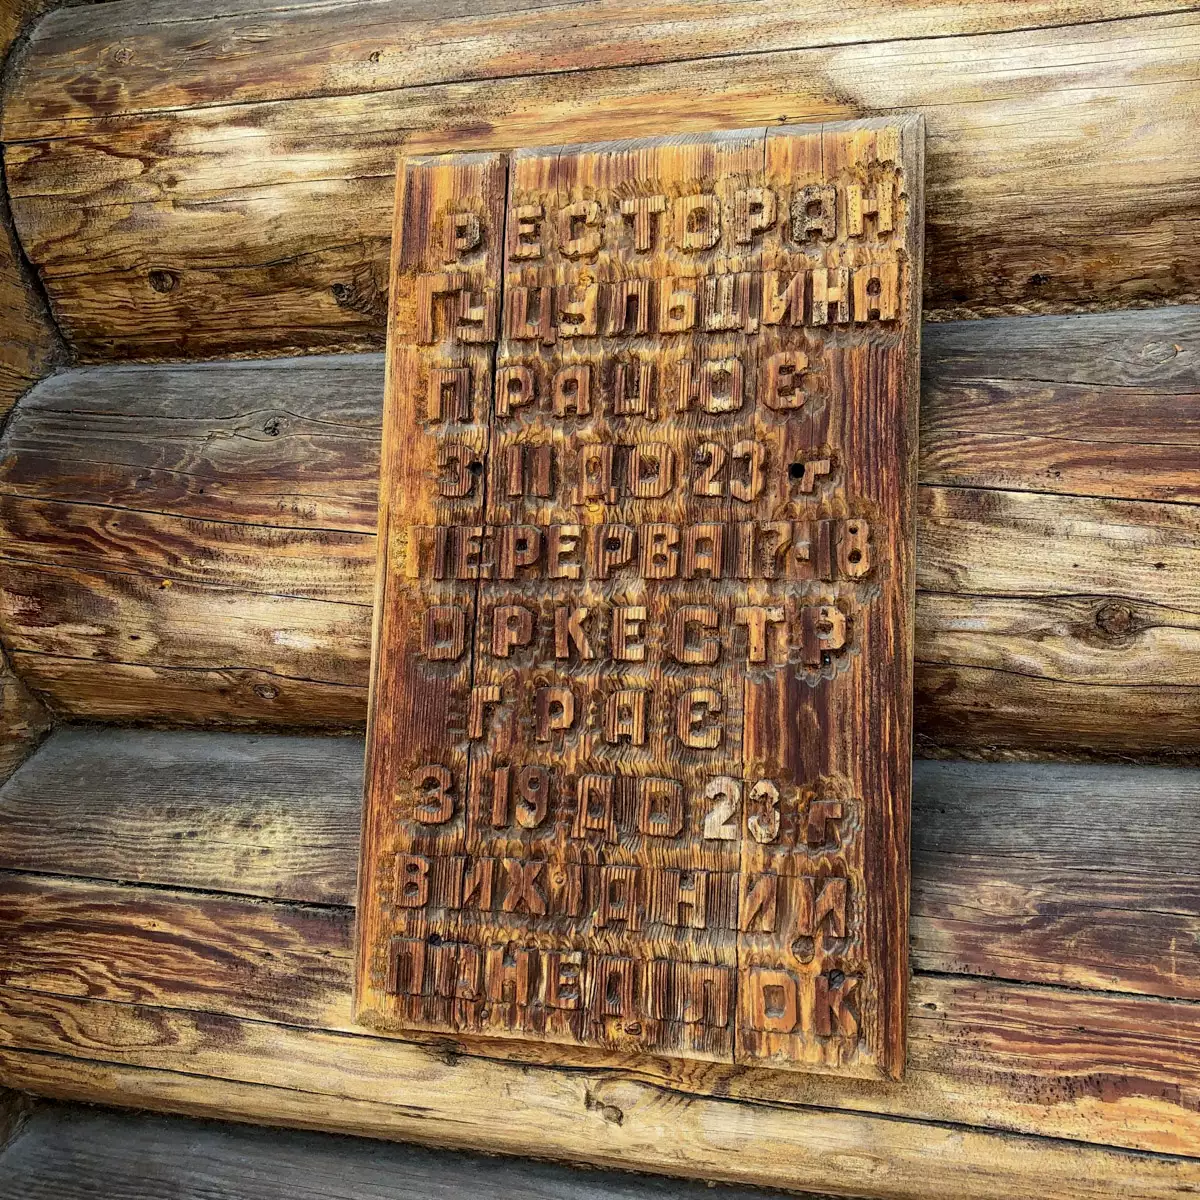 РЕСТОРАН
ГУЦУЛЬЩИНА
ПРАЦЮЄ
З 11 ДО 23 г
ПЕРЕРВА 17-18
ОРКЕСТР
ГРАЄ
З 19 ДО 23 г
ВИХІДНИЙ
ПОНЕДІЛОК